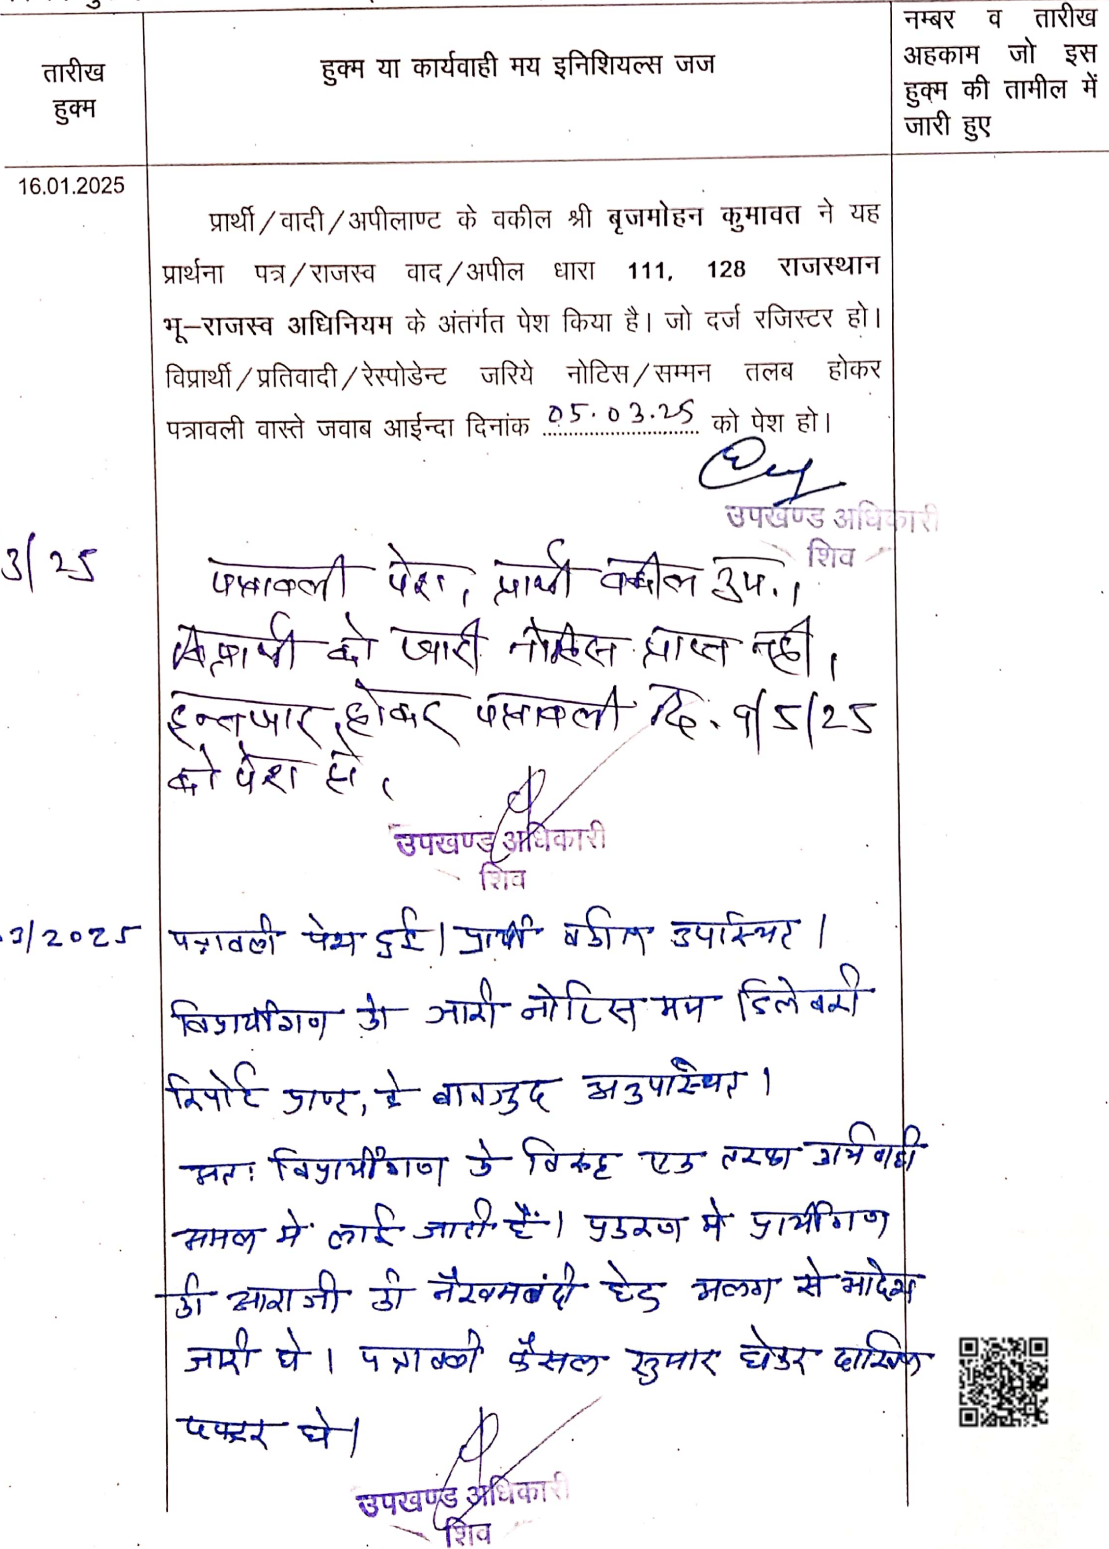 तारीख
हुक्म
हुक्म या कार्यवाही मय इनिशियल्स जज
नम्बर व तारीख
अहकाम जो इस
हुक्म की तामील में
जारी हुए
16.01.2025
प्रार्थी/वादी/अपीलाण्ट के वकील श्री बृजमोहन कुमावत ने यह
प्रार्थना पत्र/राजस्व वाद/अपील धारा 111, 128 राजस्थान
भू-राजस्व अधिनियम के अंतर्गत पेश किया है। जो दर्ज रजिस्टर हो।
विप्रार्थी/प्रतिवादी/रेस्पोडेन्ट जरिये नोटिस/सम्मन तलब होकर
पत्रावली वास्ते जवाब आईन्दा दिनांक 05.03.25 को पेश हो।
उपखण्ड अधिकारी
शिव
3/25
पत्रावली पेश। प्रार्थी वकील उप.।
विप्रार्थी को जारी नोटिस प्राप्त नहीं।
इन्तजार होकर पत्रावली दि. 9/5/25
को पेश हो।
उपखण्ड अधिकारी
शिव
3/2025
पत्रावली पेश हुई। प्रार्थी वकील उपस्थित।
विप्रार्थीगण को जारी नोटिस मय डिलेवरी
रिपोर्ट प्राप्त, के बावजुद अनुपस्थित।
अतः विप्रार्थीगण के विरूद्ध एक तरफा कार्यवाही
अमल में लाई जाती हैं। प्रकरण मे प्रार्थीगण
की आराजी की नैखमबंदी हेतु अलग से आदेश
जारी हो। पत्रावली फैसल शुमार होकर दाखिल
दफ्तर हो।
उपखण्ड अधिकारी
शिव